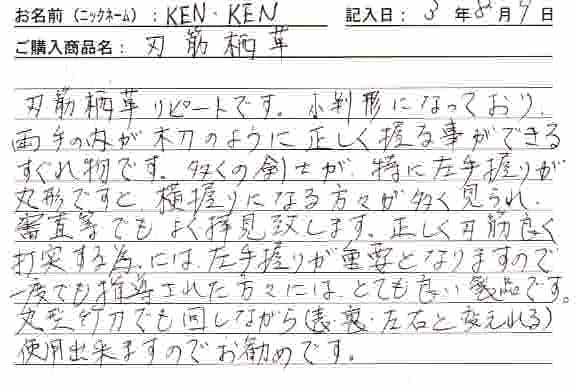 お名前(ニックネーム):KEN・KEN 記入日:3年8月4日
ご購入商品名:刃筋柄革
刃筋柄革リピートです。小判形になっており、
両手の内が木刀のように正しく握る事ができる
すぐれ物です。多くの剣士が、特に左手握りが
丸形ですと、横握りになる方々が多く見られ、
審査等でもよく拝見致します。正しく刃筋良く
打突する為には、左手握りが重要となりますので
一度でも指導された方々には、とても良い製品です。
丸型竹刀でも回しながら(表裏・左右と変えれる)
使用出来ますのでお勧めです。